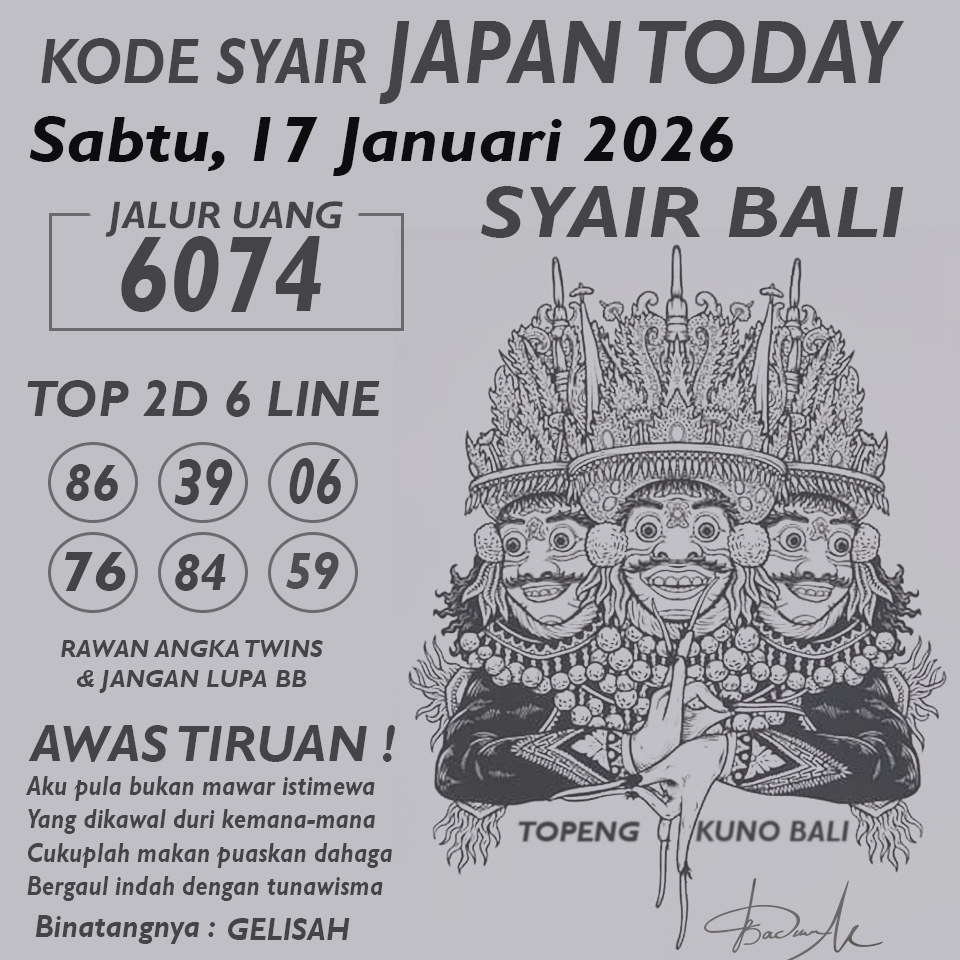 KODE SYAIR JAPAN TODAY
Sabtu, 17 Januari 2026
SYAIR BALI
JALUR UANG
6074
TOP 2D 6 LINE
86 39 06
76 84 59
RAWAN ANGKA TWINS
& JANGAN LUPA BB
AWAS TIRUAN !
Aku pula bukan mawar istimewa
Yang dikawal duri kemana-mana
Cukuplah makan puaskan dahaga
Bergaul indah dengan tunawisma
Binatangnya : GELISAH
TOPENG KUNO BALI